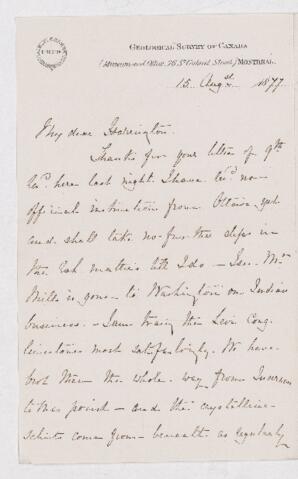 GEOLOGICAL SURVEY OF CANADA
(Museum and Office, 76 St Gabriel Street,) MONTREAL.
15 Augst 1877.
My dear Harrington.
Thanks for your letter of 9th
recd here last night. I have recd no
official instruction from Ottawa yet
and shall take no further steps in
the matter till I do - I see Mr
Mills is gone to Washington on Indian
business. - I am tracing the
limestones most satisfactorily. We have
got them the whole way from
to this point - and the crystalline
schists come from beneath as regularly